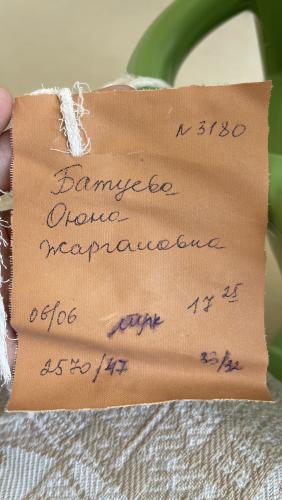 N 3180
Батуева
Оюна
Жаргаловна
06/06 17 25
2570/47 33/32